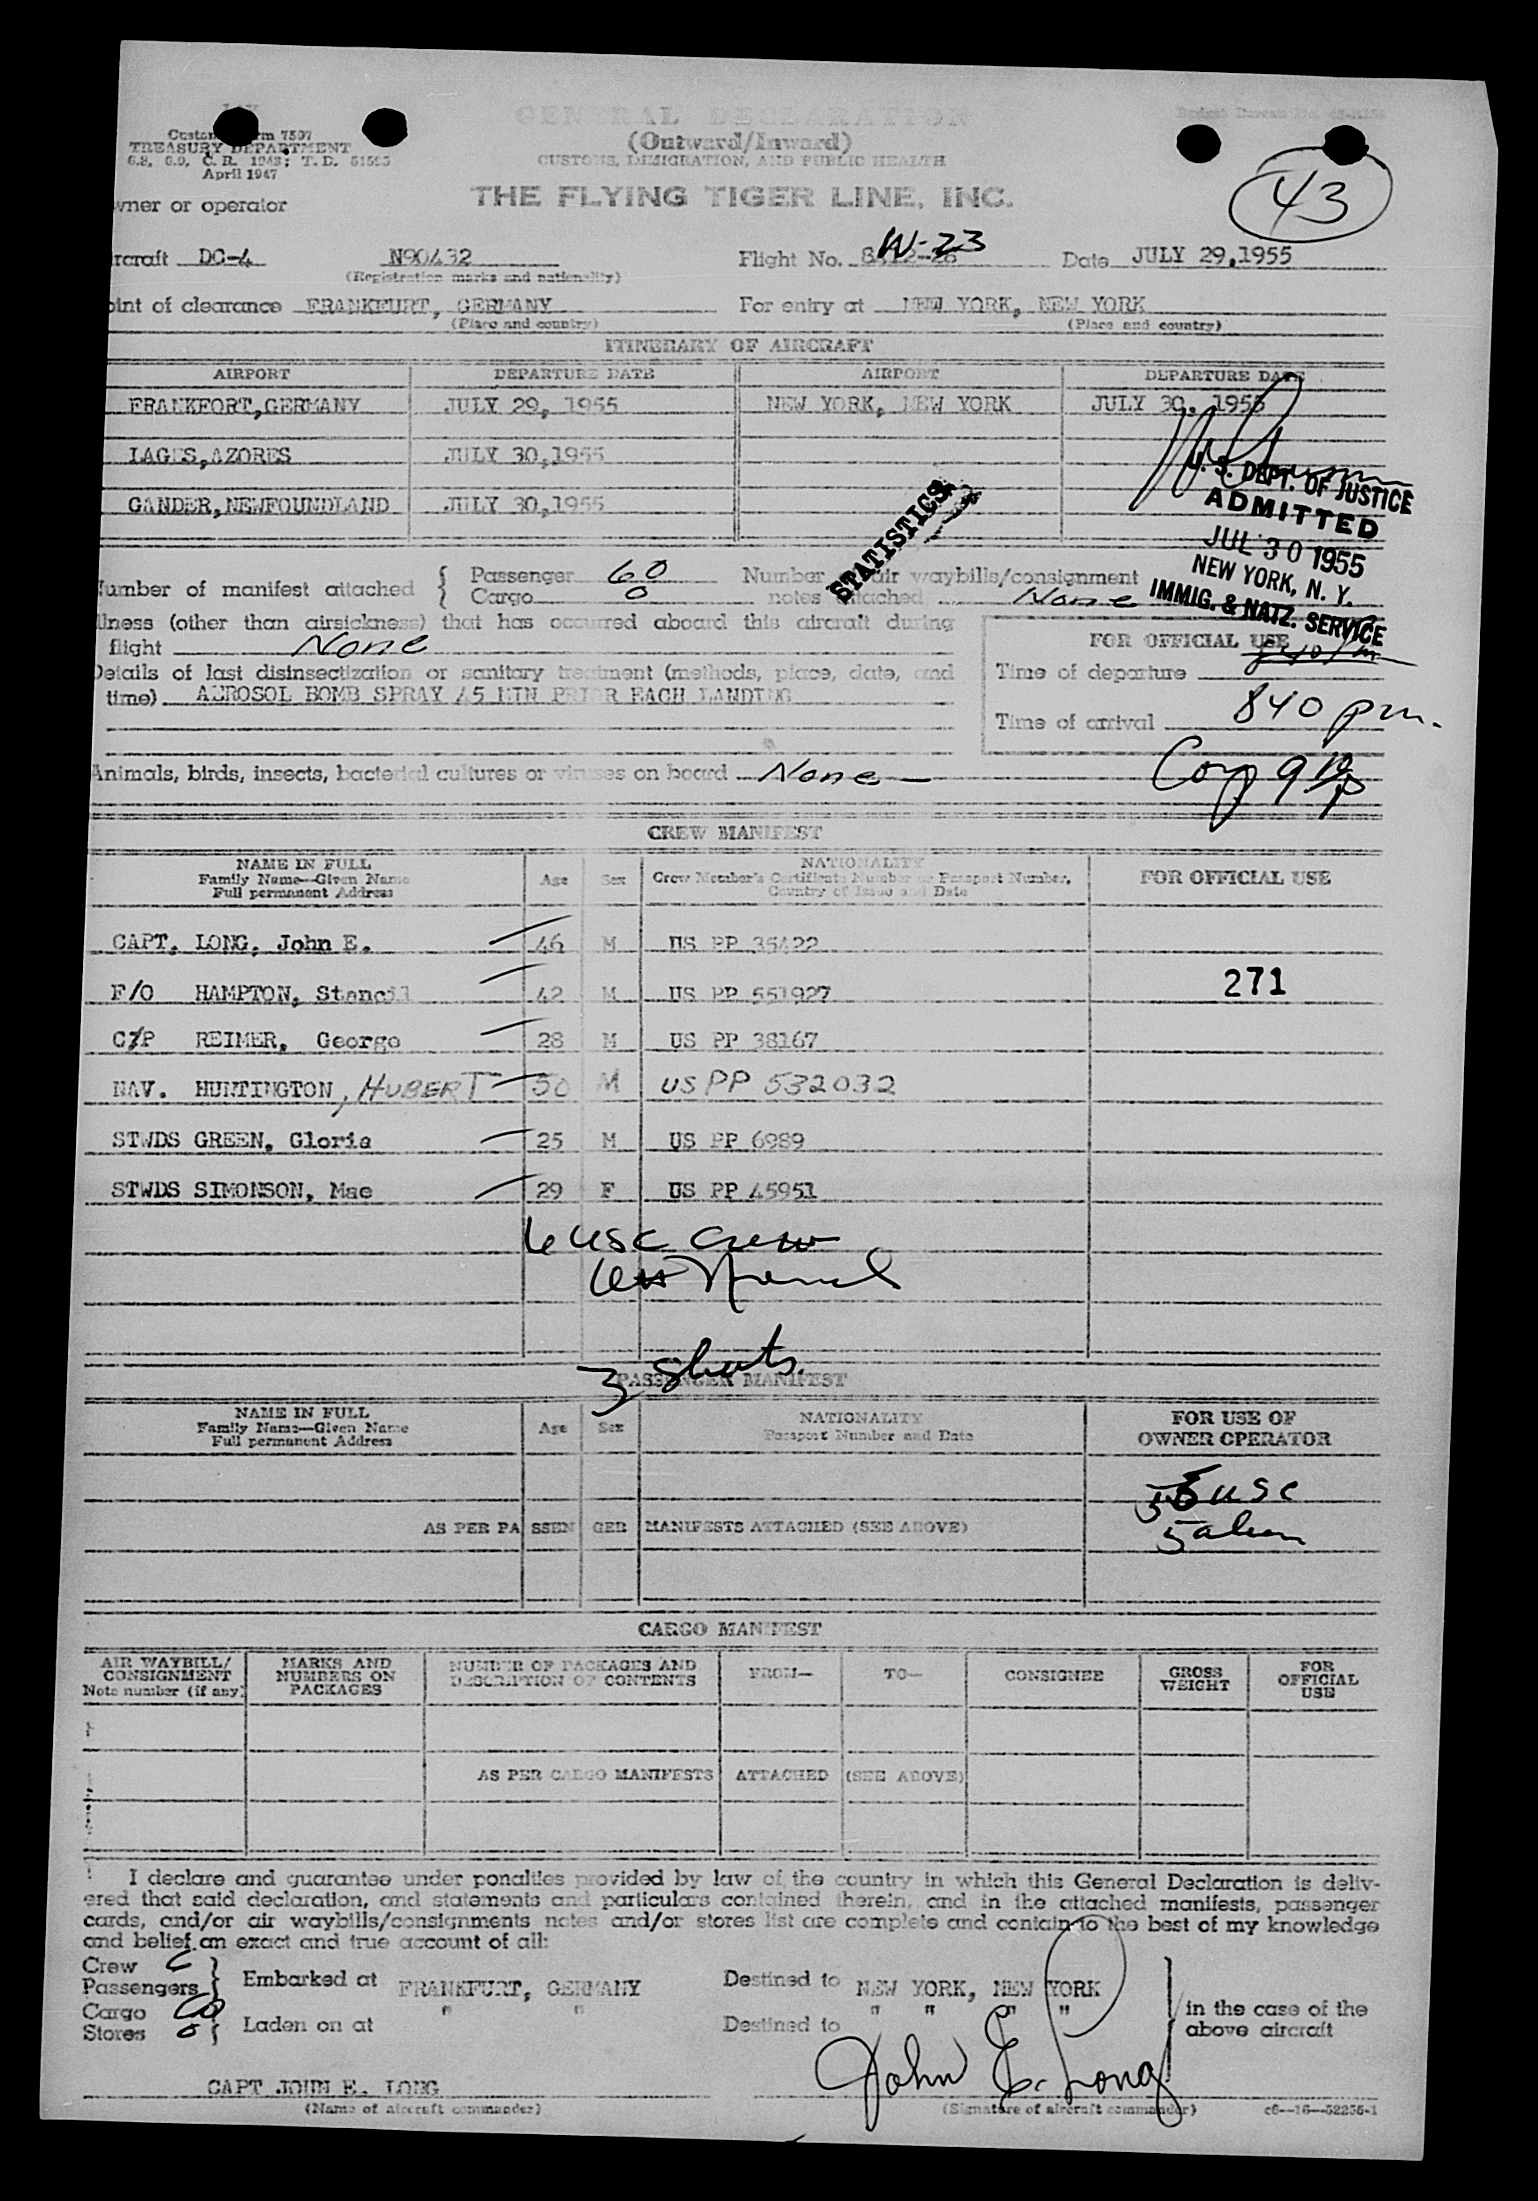 GENERAL DECLARATION
(Outward/Inward)
CUSTOMS, IMMIGRATION, AND PUBLIC HEALTH
TREASURY DEPARTMENT
6.8, 6.9, C. R. 1943; T. D. 51595
April 1947
THE FLYING TIGER LINE, INC.
43
wner or operator
rcraft DC-4 N90432 Flight No. W-23 Date JULY 29,1955
(Registration marks and nationality)
oint of clearance FRANKFURT, GERMANY For entry at NEW YORK, NEW YORK
(Place and country) (Place and country)
ITINERARY OF AIRCRAFT
AIRPORT DEPARTURE DATE AIRPORT DEPARTURE DATE
FRANKFORT,GERMANY JULY 29, 1955 NEW YORK, NEW YORK JULY 30, 1955
LAGES,AZORES JULY 30,1955
GANDER,NEWFOUNDLAND JULY 30,1955
STATISTICS
U. S. DEPT. OF JUSTICE
ADMITTED
JUL 30 1955
NEW YORK, N. Y.
IMMIG. & NATZ. SERVICE
Number of manifest attached { Passenger 60 Number air waybills/consignment
Cargo 0 notes attached None
llness (other than airsickness) that has occurred aboard this aircraft during
flight None
FOR OFFICIAL USE
Details of last disinsectization or sanitary treatment (methods, place, date, and
time) AEROSOL BOMB SPRAY 45 MIN PRIOR EACH LANDING
Time of departure
Time of arrival 840 pm.
Animals, birds, insects, bacterial cultures or viruses on board None
CREW MANIFEST
NAME IN FULL
Family Name—Given Name
Full permanent Address
Age Sex
NATIONALITY
Crew Member's Certificate Number or Passport Number,
Country of Issue and Date
FOR OFFICIAL USE
CAPT. LONG, John E. 46 M US PP 35422
F/O HAMPTON, Stancil 42 M US PP 551927 271
C/P REIMER, George 28 M US PP 38167
NAV. HUNTINGTON, HUBERT 50 M US PP 532032
STWDS GREEN, Gloria 25 M US PP 6989
STWDS SIMONSON, Mae 29 F US PP 45951
6 USC Crew
3 sheets.
PASSENGER MANIFEST
NAME IN FULL
Family Name—Given Name
Full permanent Address
Age Sex
NATIONALITY
Passport Number and Date
FOR USE OF
OWNER OPERATOR
USC
5 alien
AS PER PASSENGER MANIFESTS ATTACHED (SEE ABOVE)
CARGO MANIFEST
AIR WAYBILL/
CONSIGNMENT
Note number (if any)
MARKS AND
NUMBERS ON
PACKAGES
NUMBER OF PACKAGES AND
DESCRIPTION OF CONTENTS
FROM— TO— CONSIGNEE
GROSS
WEIGHT
FOR
OFFICIAL
USE
AS PER CARGO MANIFESTS ATTACHED (SEE ABOVE)
I declare and guarantee under penalties provided by law of the country in which this General Declaration is deliv-
ered that said declaration, and statements and particulars contained therein, and in the attached manifests, passenger
cards, and/or air waybills/consignments notes and/or stores list are complete and contain to the best of my knowledge
and belief an exact and true account of all:
Crew
Passengers
Embarked at FRANKFURT, GERMANY Destined to NEW YORK, NEW YORK
Cargo
Stores
Laden on at " " Destined to " " " "
in the case of the
above aircraft
CAPT JOHN E. LONG John E. Long
(Name of aircraft commander) (Signature of aircraft commander) c6—16—52255-1